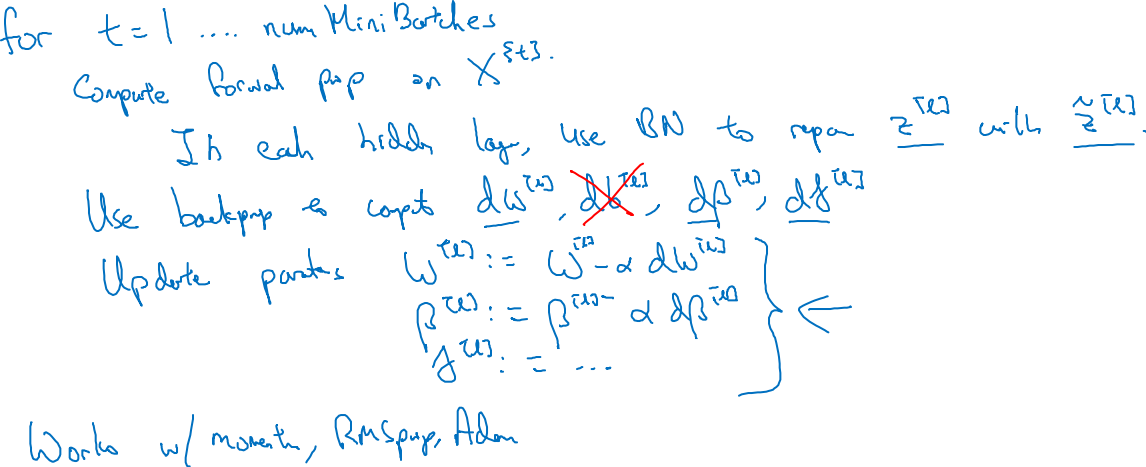 for t=1 .... num Mini Batches
Compute forward prop on X^{t}.
In each hidden layer, use BN to repar z^[l] with z̃^[l].
Use backprop to compute dw^[l], db^[l], dβ^[l], dγ^[l]
Update params W^[l] := W^[l] - α dW^[l]
β^[l] := β^[l] - α dβ^[l]
γ^[l] := ...
Works w/ momentum, RMSprop, Adam